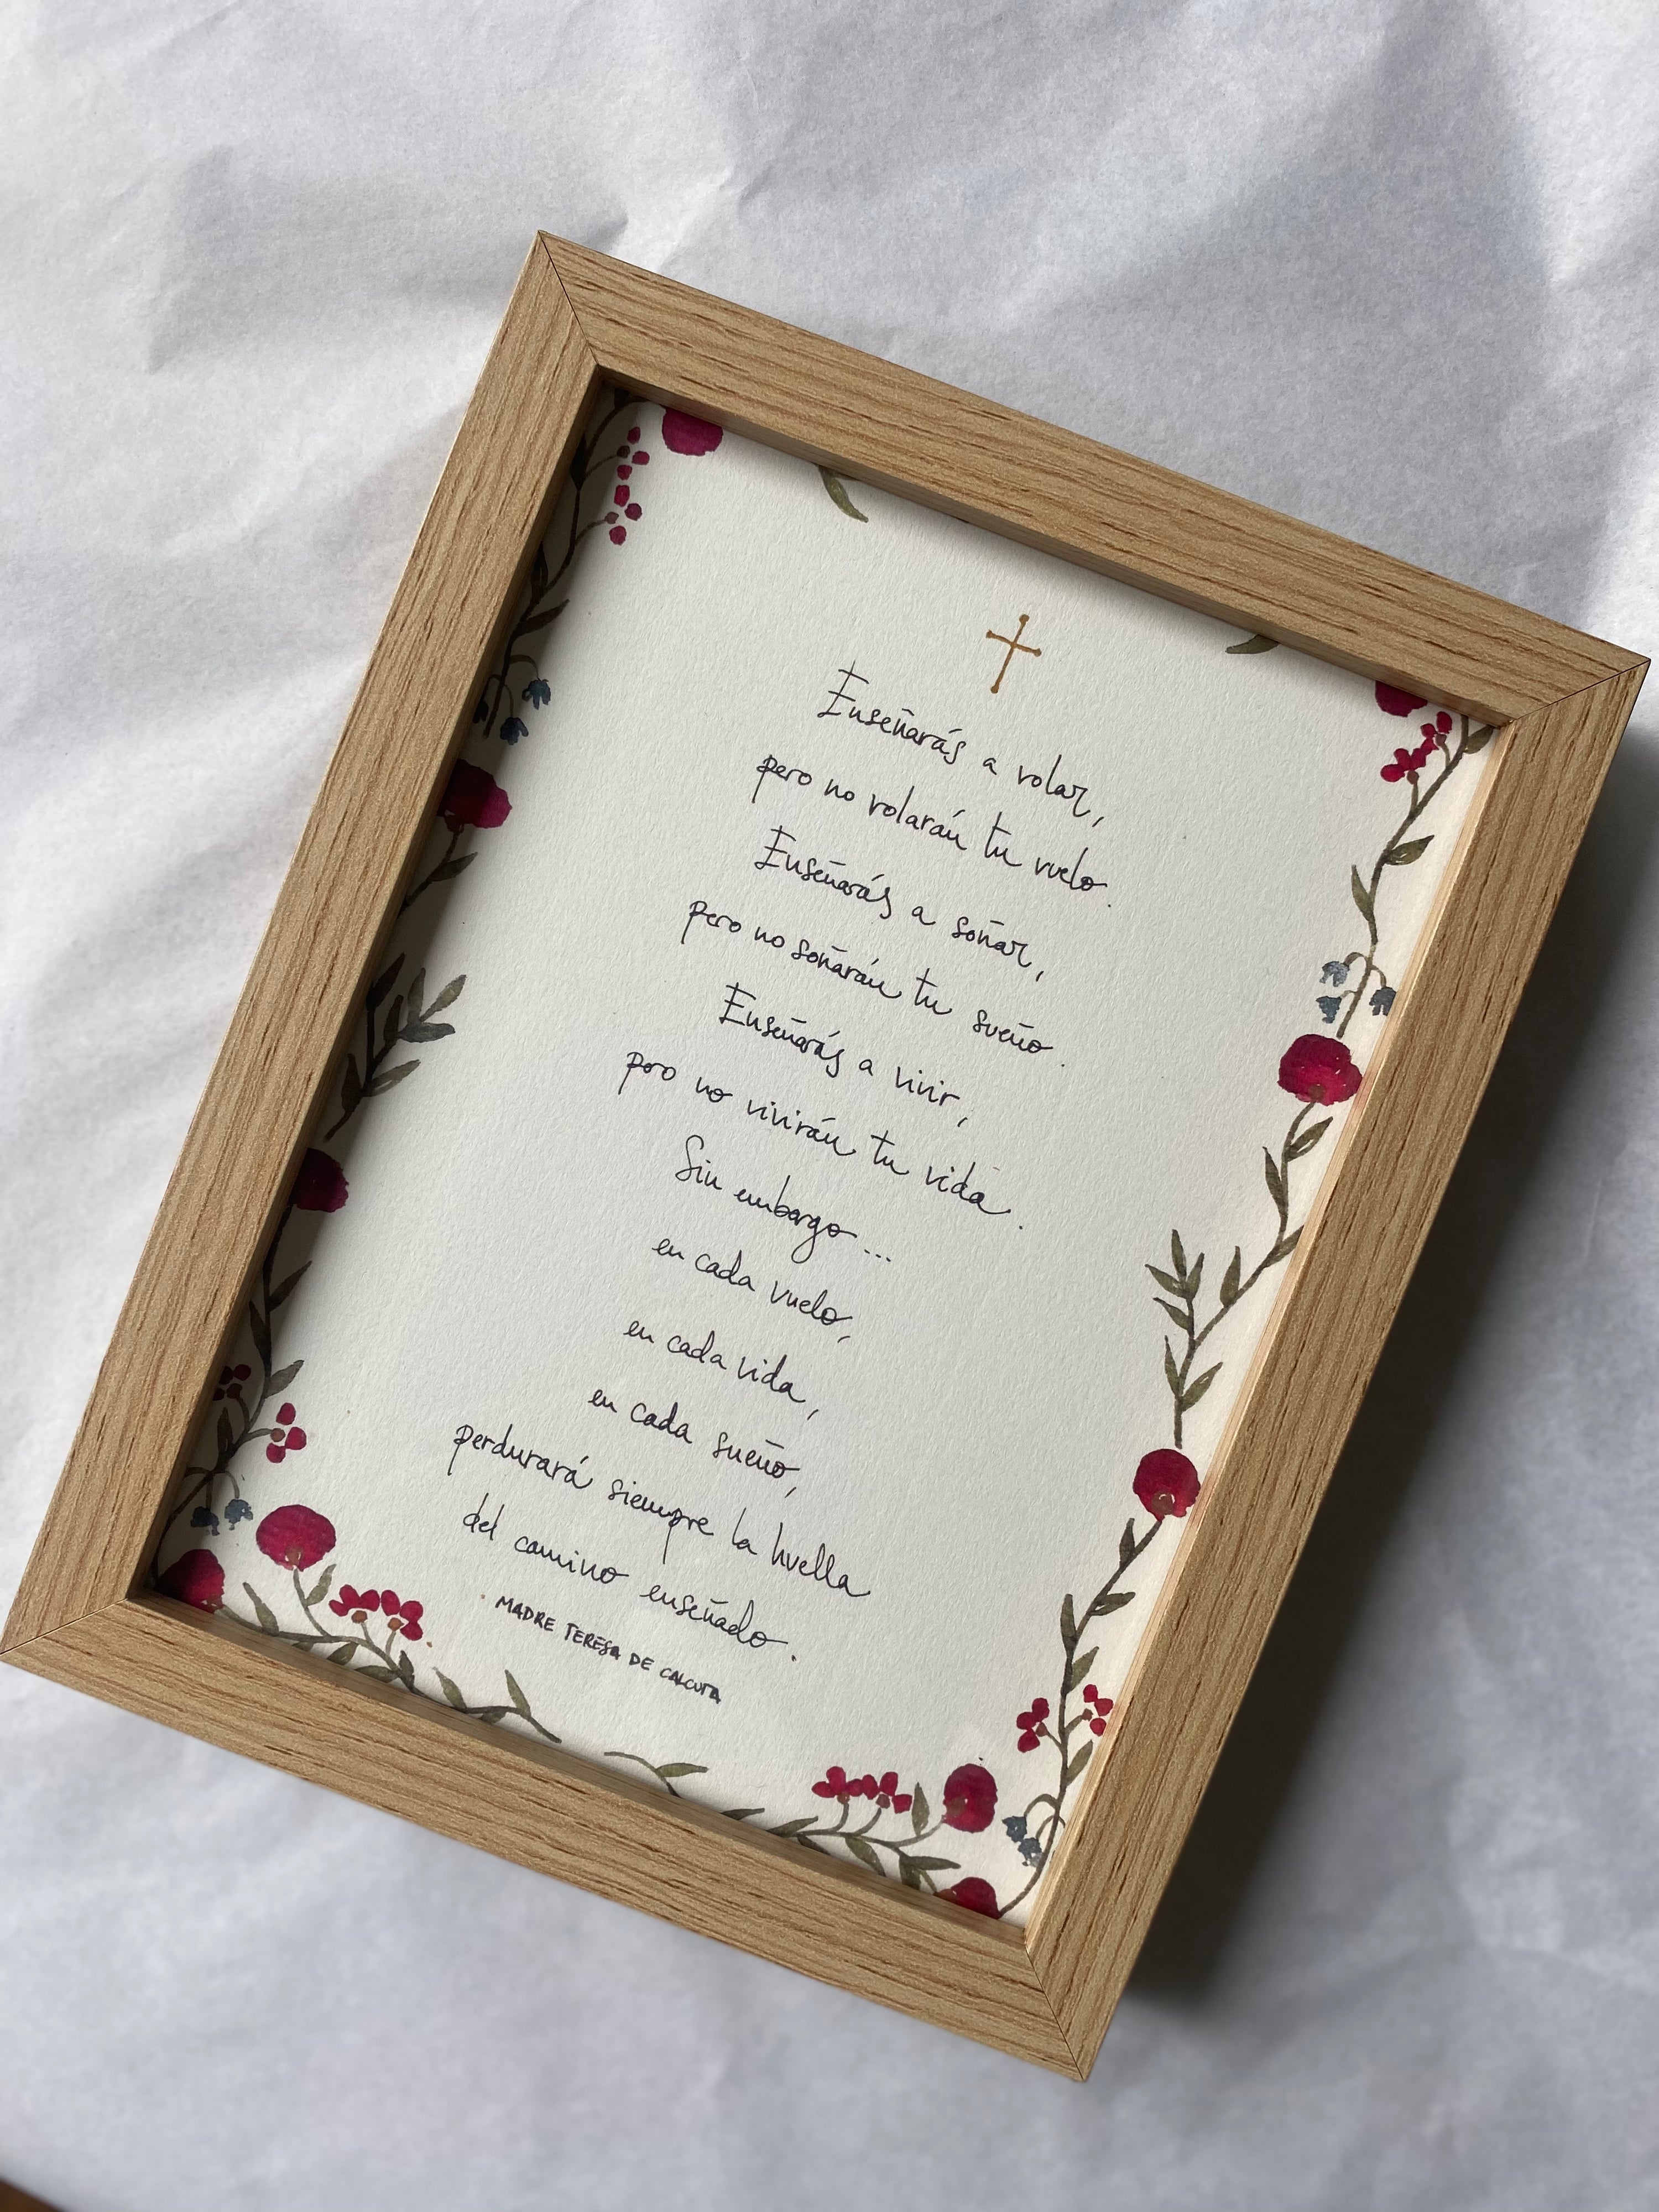 Enseñarás a volar,
pero no volarán tu vuelo.
Enseñarás a soñar,
pero no soñarán tu sueño.
Enseñarás a vivir,
pero no vivirán tu vida.
Sin embargo...
en cada vuelo,
en cada vida,
en cada sueño,
perdurará siempre la huella
del camino enseñado.
MADRE TERESA DE CALCUTA